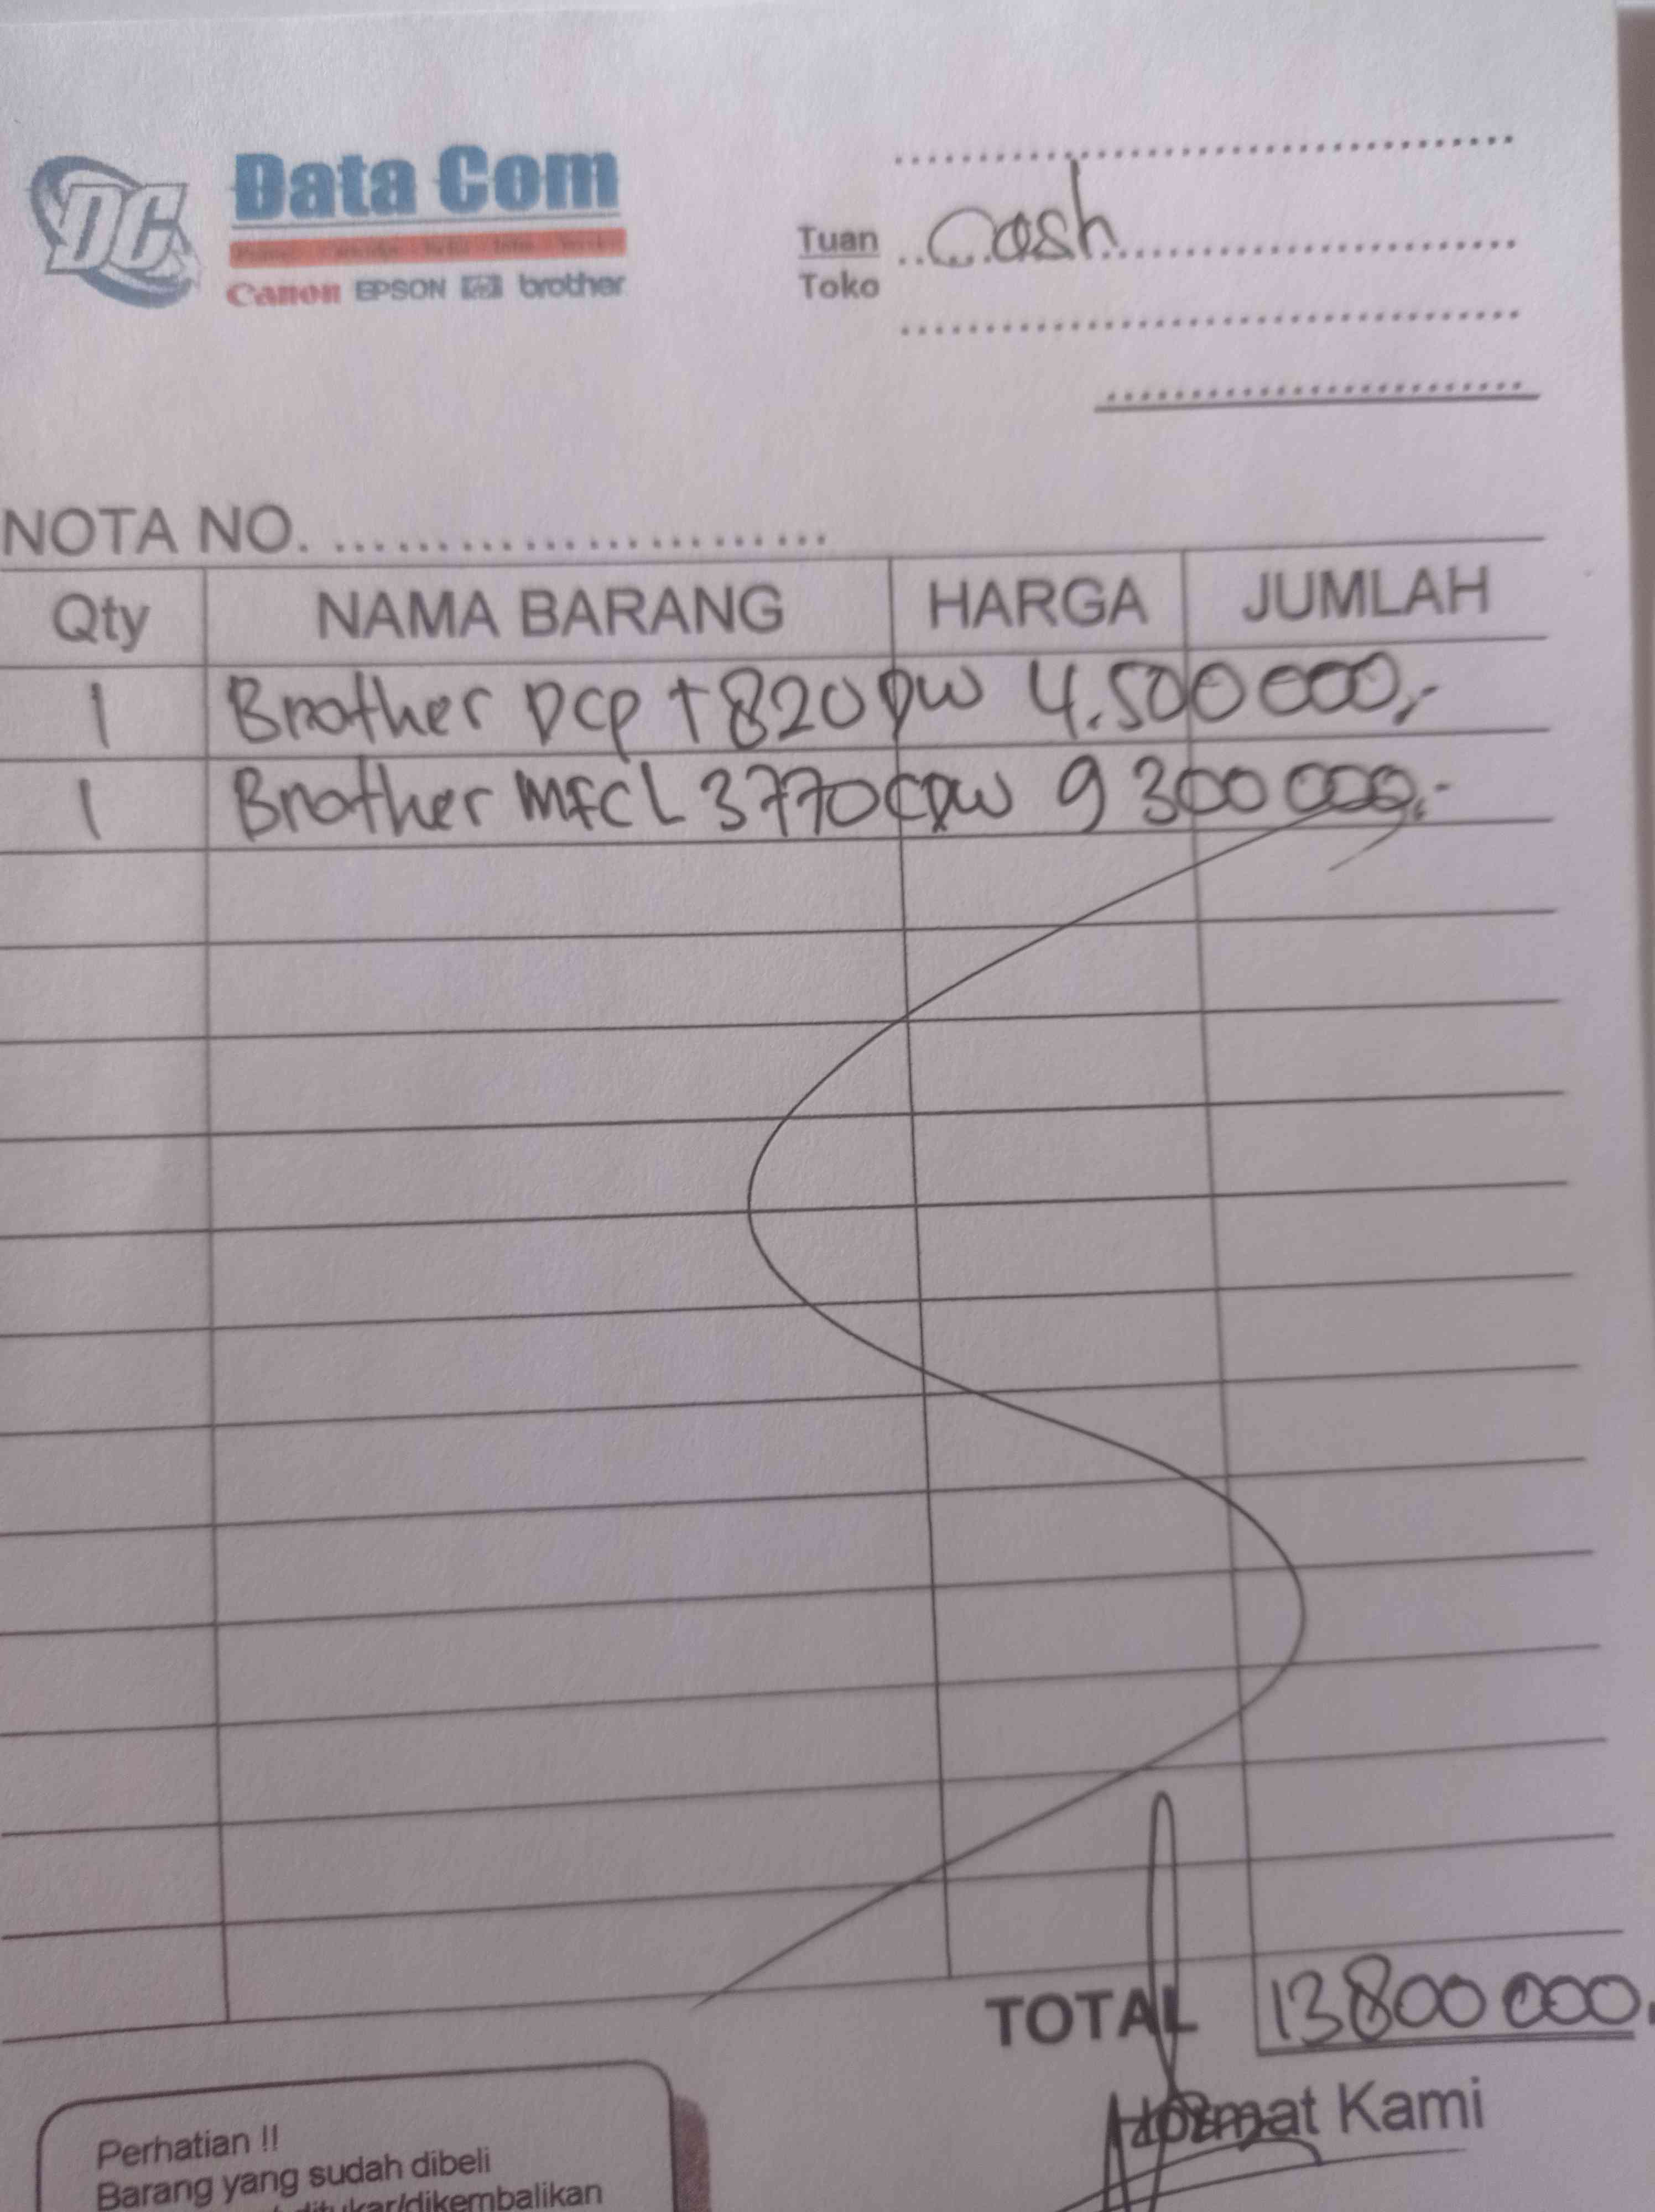 DC Data Com
Canon EPSON hp brother
Tuan Cash
Toko
NOTA NO.
Qty NAMA BARANG HARGA JUMLAH
1 Brother Dcp T820DW 4.500000,-
1 Brother MFCL3770CDW 9300000,-
TOTAL 13800000,
Hormat Kami
Perhatian !!
Barang yang sudah dibeli
ditukar/dikembalikan